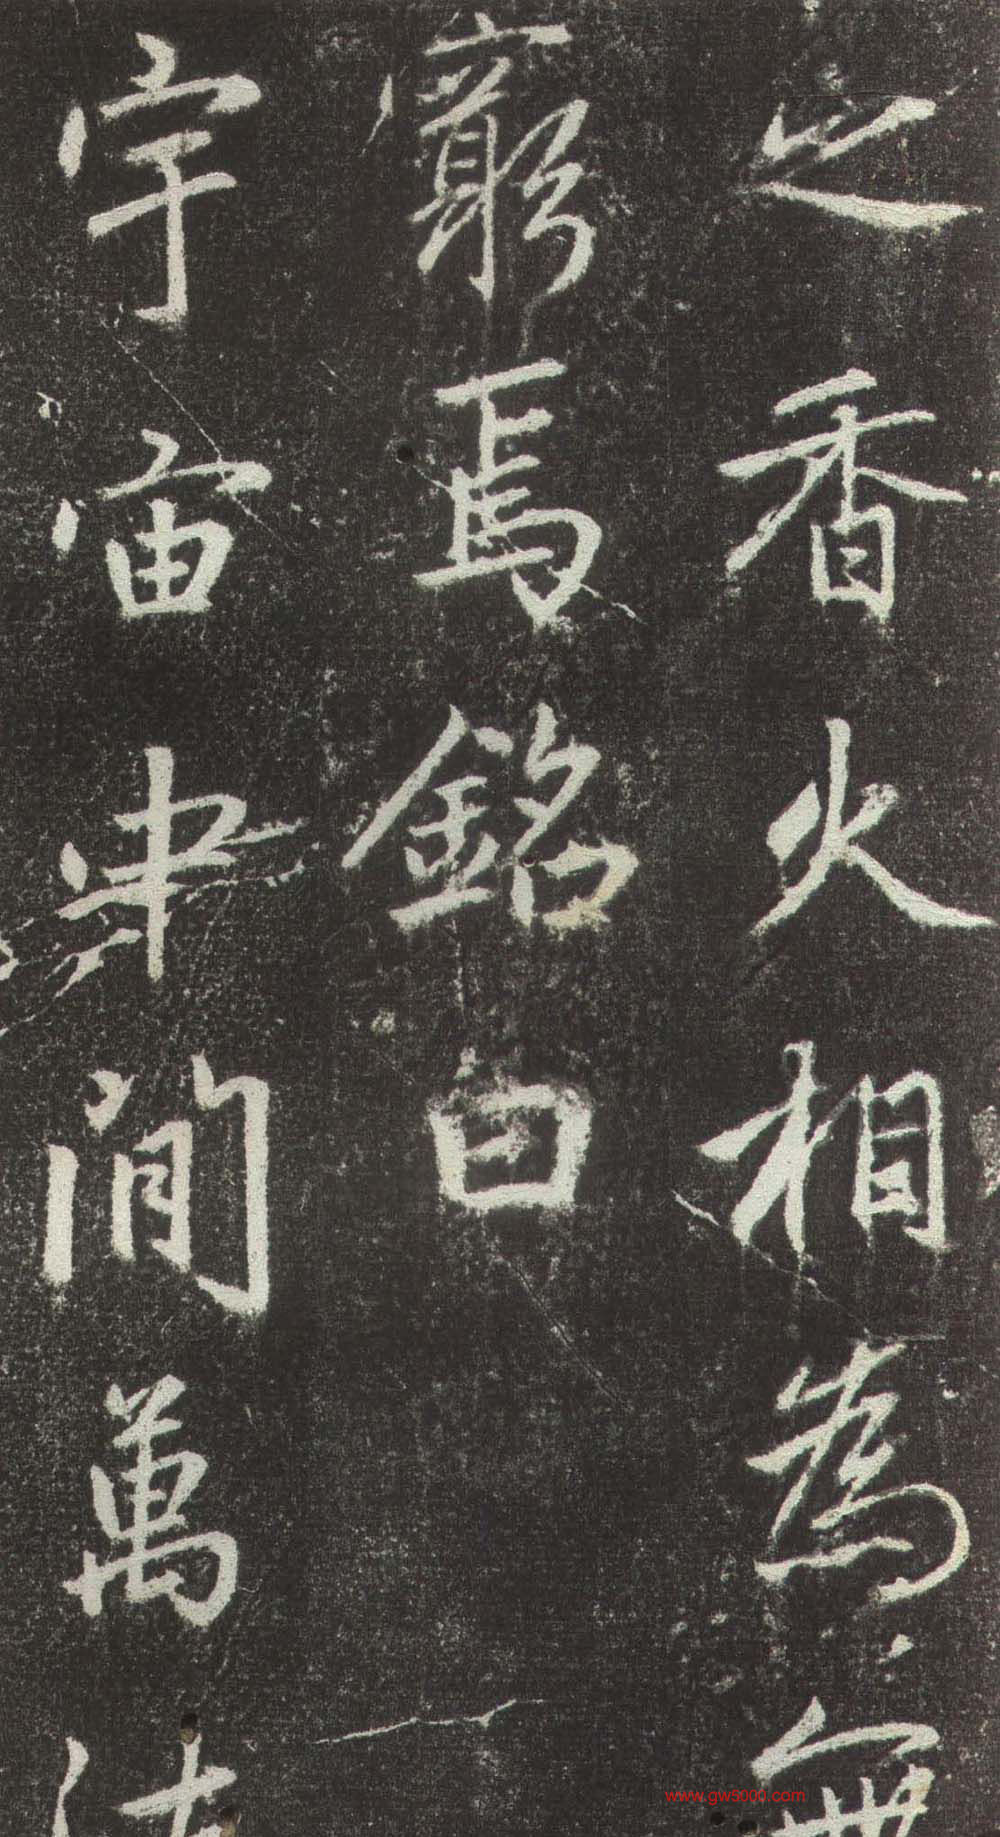 之香火相為無
窮焉銘曰
宇宙中間萬
www.gw9000.com